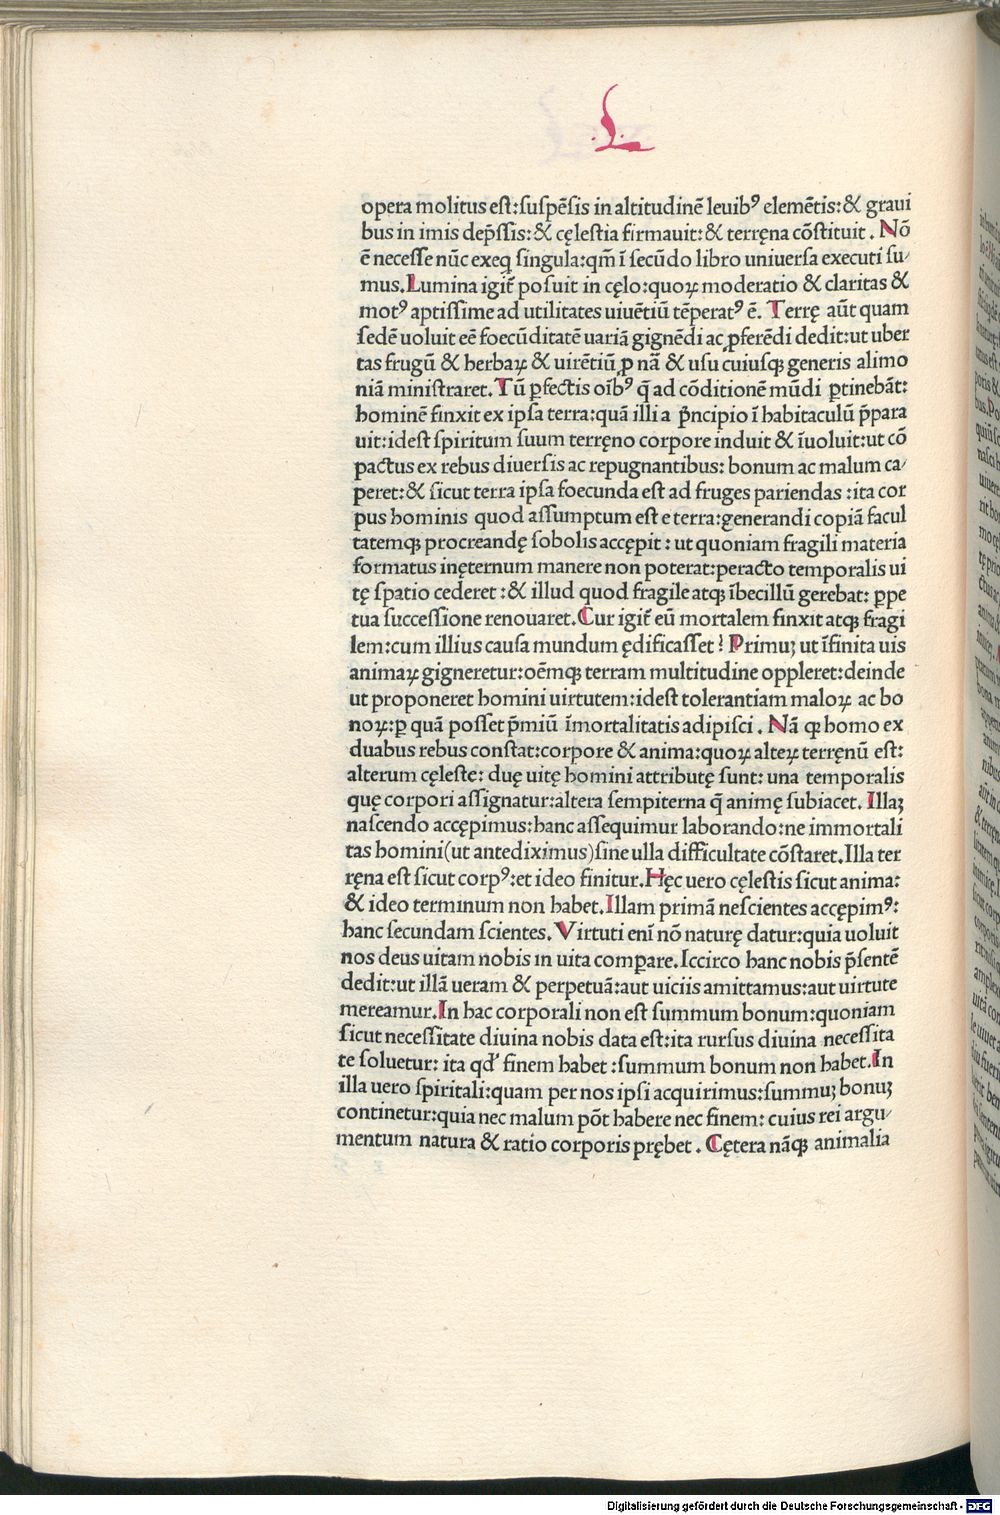 L
opera molitus eſt:ſuſpēſis in altitudinē leuibꝰ elemētis:& graui
bus in imis dep̄ſſis:& cęleſtia firmauit:& terręna cōſtituit . Nō
ē neceſſe nūc exeq̄ ſingula:qm̄ ī ſecūdo libro uniuerſa executi ſu⸗
mus.Lumina igit̄ poſuit in cęlo:quoꝝ moderatio & claritas &
motꝰ aptiſſime ad utilitates uiuētiū tēperatꝰ ē. Terrę aūt quam
ſedē uoluit eē foecūditatē uariā gignēdi ac ꝓferēdi dedit:ut uber
tas frugū & herbaꝝ & uirētiū ꝓ nā & uſu cuiuſqꝫ generis alimo
niā miniſtraret.Tū ꝑfectis oībꝰ q̄ ad cōditionē mūdi ꝑtinebāt:
hominē finxit ex ipſa terra:quā illi a p̄ncipio ī habitaculū p̄para
uit:ideſt ſpiritum ſuum terręno corpore induit & īuoluit:ut cō
pactus ex rebus diuerſis ac repugnantibus: bonum ac malum ca⸗
peret:& ſicut terra ipſa foecunda eſt ad fruges pariendas :ita cor
pus hominis quod aſſumptum eſt e terra:generandi copiā facul
tatemqꝫ procreandę ſobolis accępit : ut quoniam fragili materia
formatus inęternum manere non poterat:peracto temporalis ui
tę ſpatio cederet :& illud quod fragile atqꝫ ībecillū gerebat: ꝑpe
tua ſucceſſione renouaret.Cur igit̄ eū mortalem finxit atqꝫ fragi
lem:cum illius cauſa mundum ędificaſſet? Primuꝫ ut īfinita uis
animaꝝ gigneretur:oēmqꝫ terram multitudine oppleret:deinde
ut proponeret homini uirtutem:ideſt tolerantiam maloꝝ ac bo
noꝝ:ꝑ quā poſſet p̄miū īmortalitatis adipiſci . Nā qꝫ homo ex
duabus rebus conſtat:corpore & anima:quoꝝ alteꝝ terrēnū eſt:
alterum cęleſte: duę uitę homini attributę ſunt: una temporalis
quę corpori aſſignatur:altera ſempiterna q̄ animę ſubiacet. Illaꝫ
naſcendo accępimus:hanc aſſequimur laborando:ne immortali
tas homini(ut antediximus)ſine ulla difficultate cōſtaret.Illa ter
ręna eſt ſicut corpꝰ:et ideo finitur.Hęc uero cęleſtis ſicut anima:
& ideo terminum non habet.Illam primā neſcientes accępimꝰ:
hanc ſecundam ſcientes.Virtuti enī nō naturę datur:quia uoluit
nos deus uitam nobis in uita comparare.Iccirco hanc nobis p̄ſentē
dedit:ut illā ueram & perpetuā:aut uiciis amittamus:aut uirtute
mereamur.In hac corporali non eſt ſummum bonum:quoniam
ſicut neceſſitate diuina nobis data eſt:ita rurſus diuina neceſſita
te ſoluetur: ita qd̓ finem habet :ſummum bonum non habet.In
illa uero ſpiritali:quam per nos ipſi acquirimus:ſummuꝫ bonuꝫ
continetur:quia nec malum pōt habere nec finem: cuius rei argu⸗
mentum natura & ratio corporis prębet . Cętera nāqꝫ animalia
Digitalisierung gefördert durch die Deutsche Forschungsgemeinschaft - DFG